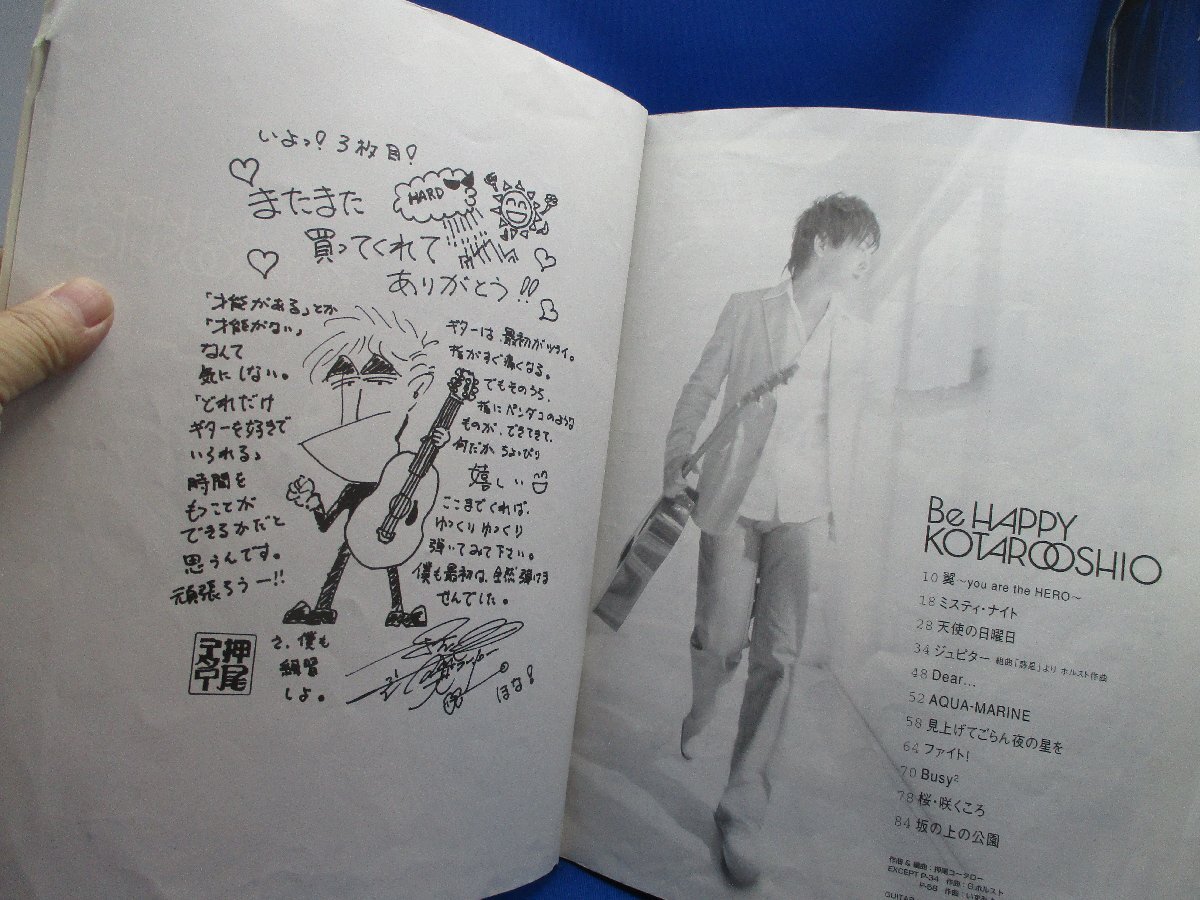 いよっ!3枚目!
またまた
HARD
買ってくれて
ありがとう!!
「才能がある」とか
「才能がない」
なんて
気にしない。
「どれだけ
ギターを好きで
いられる」
時間を
もつことが
できるかだと
思うんです。
頑張ろうー!!
ギターは、最初がツライ。
指がすぐ痛くなる。
でもそのうち、
指にペンダコのような
ものが、できてきて、
何だか、ちょっぴり
嬉しい
ここまでくれば、
ゆっくりゆっくり
弾いてみて下さい。
僕も最初は、全然弾けま
せんでした。
押尾
コータロー
さ、僕も
練習
しよ。
ほな!
Be HAPPY
KOTARO OSHIO
10 翼〜you are the HERO〜
18 ミスティ・ナイト
28 天使の日曜日
34 ジュピター 組曲「惑星」より ホルスト作曲
48 Dear...
52 AQUA-MARINE
58 見上げてごらん夜の星を
64 ファイト!
70 Busy²
78 桜・咲くころ
84 坂の上の公園
作曲 & 編曲:押尾コータロー
EXCEPT P-34 作曲:G.ホルスト
P-58 作曲:いずみ
GUITAR